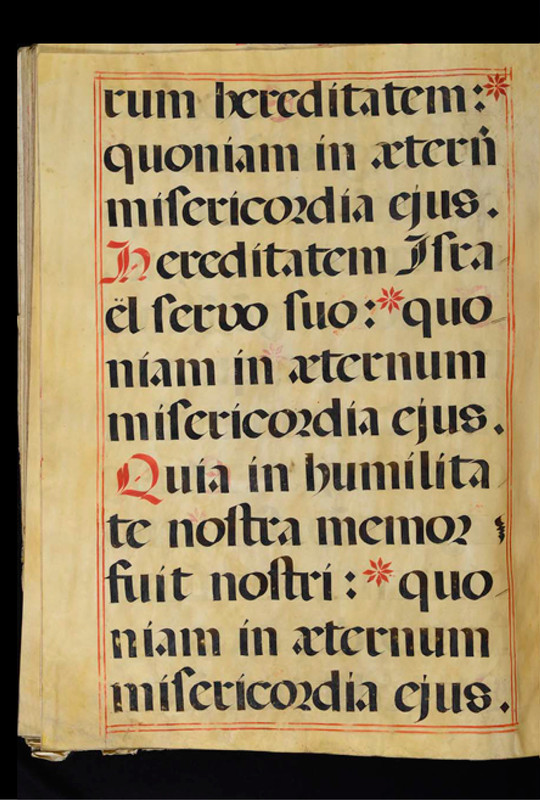 rum hereditatem:*
quoniam in æterñ
miſericordia ejus.
Hereditatem Iſra
ël ſervo ſuo:*quo
niam in æternum
miſericordia ejus.
Quia in humilita
te noſtra memor
fuit noſtri:*quo
niam in æternum
miſericordia ejus.